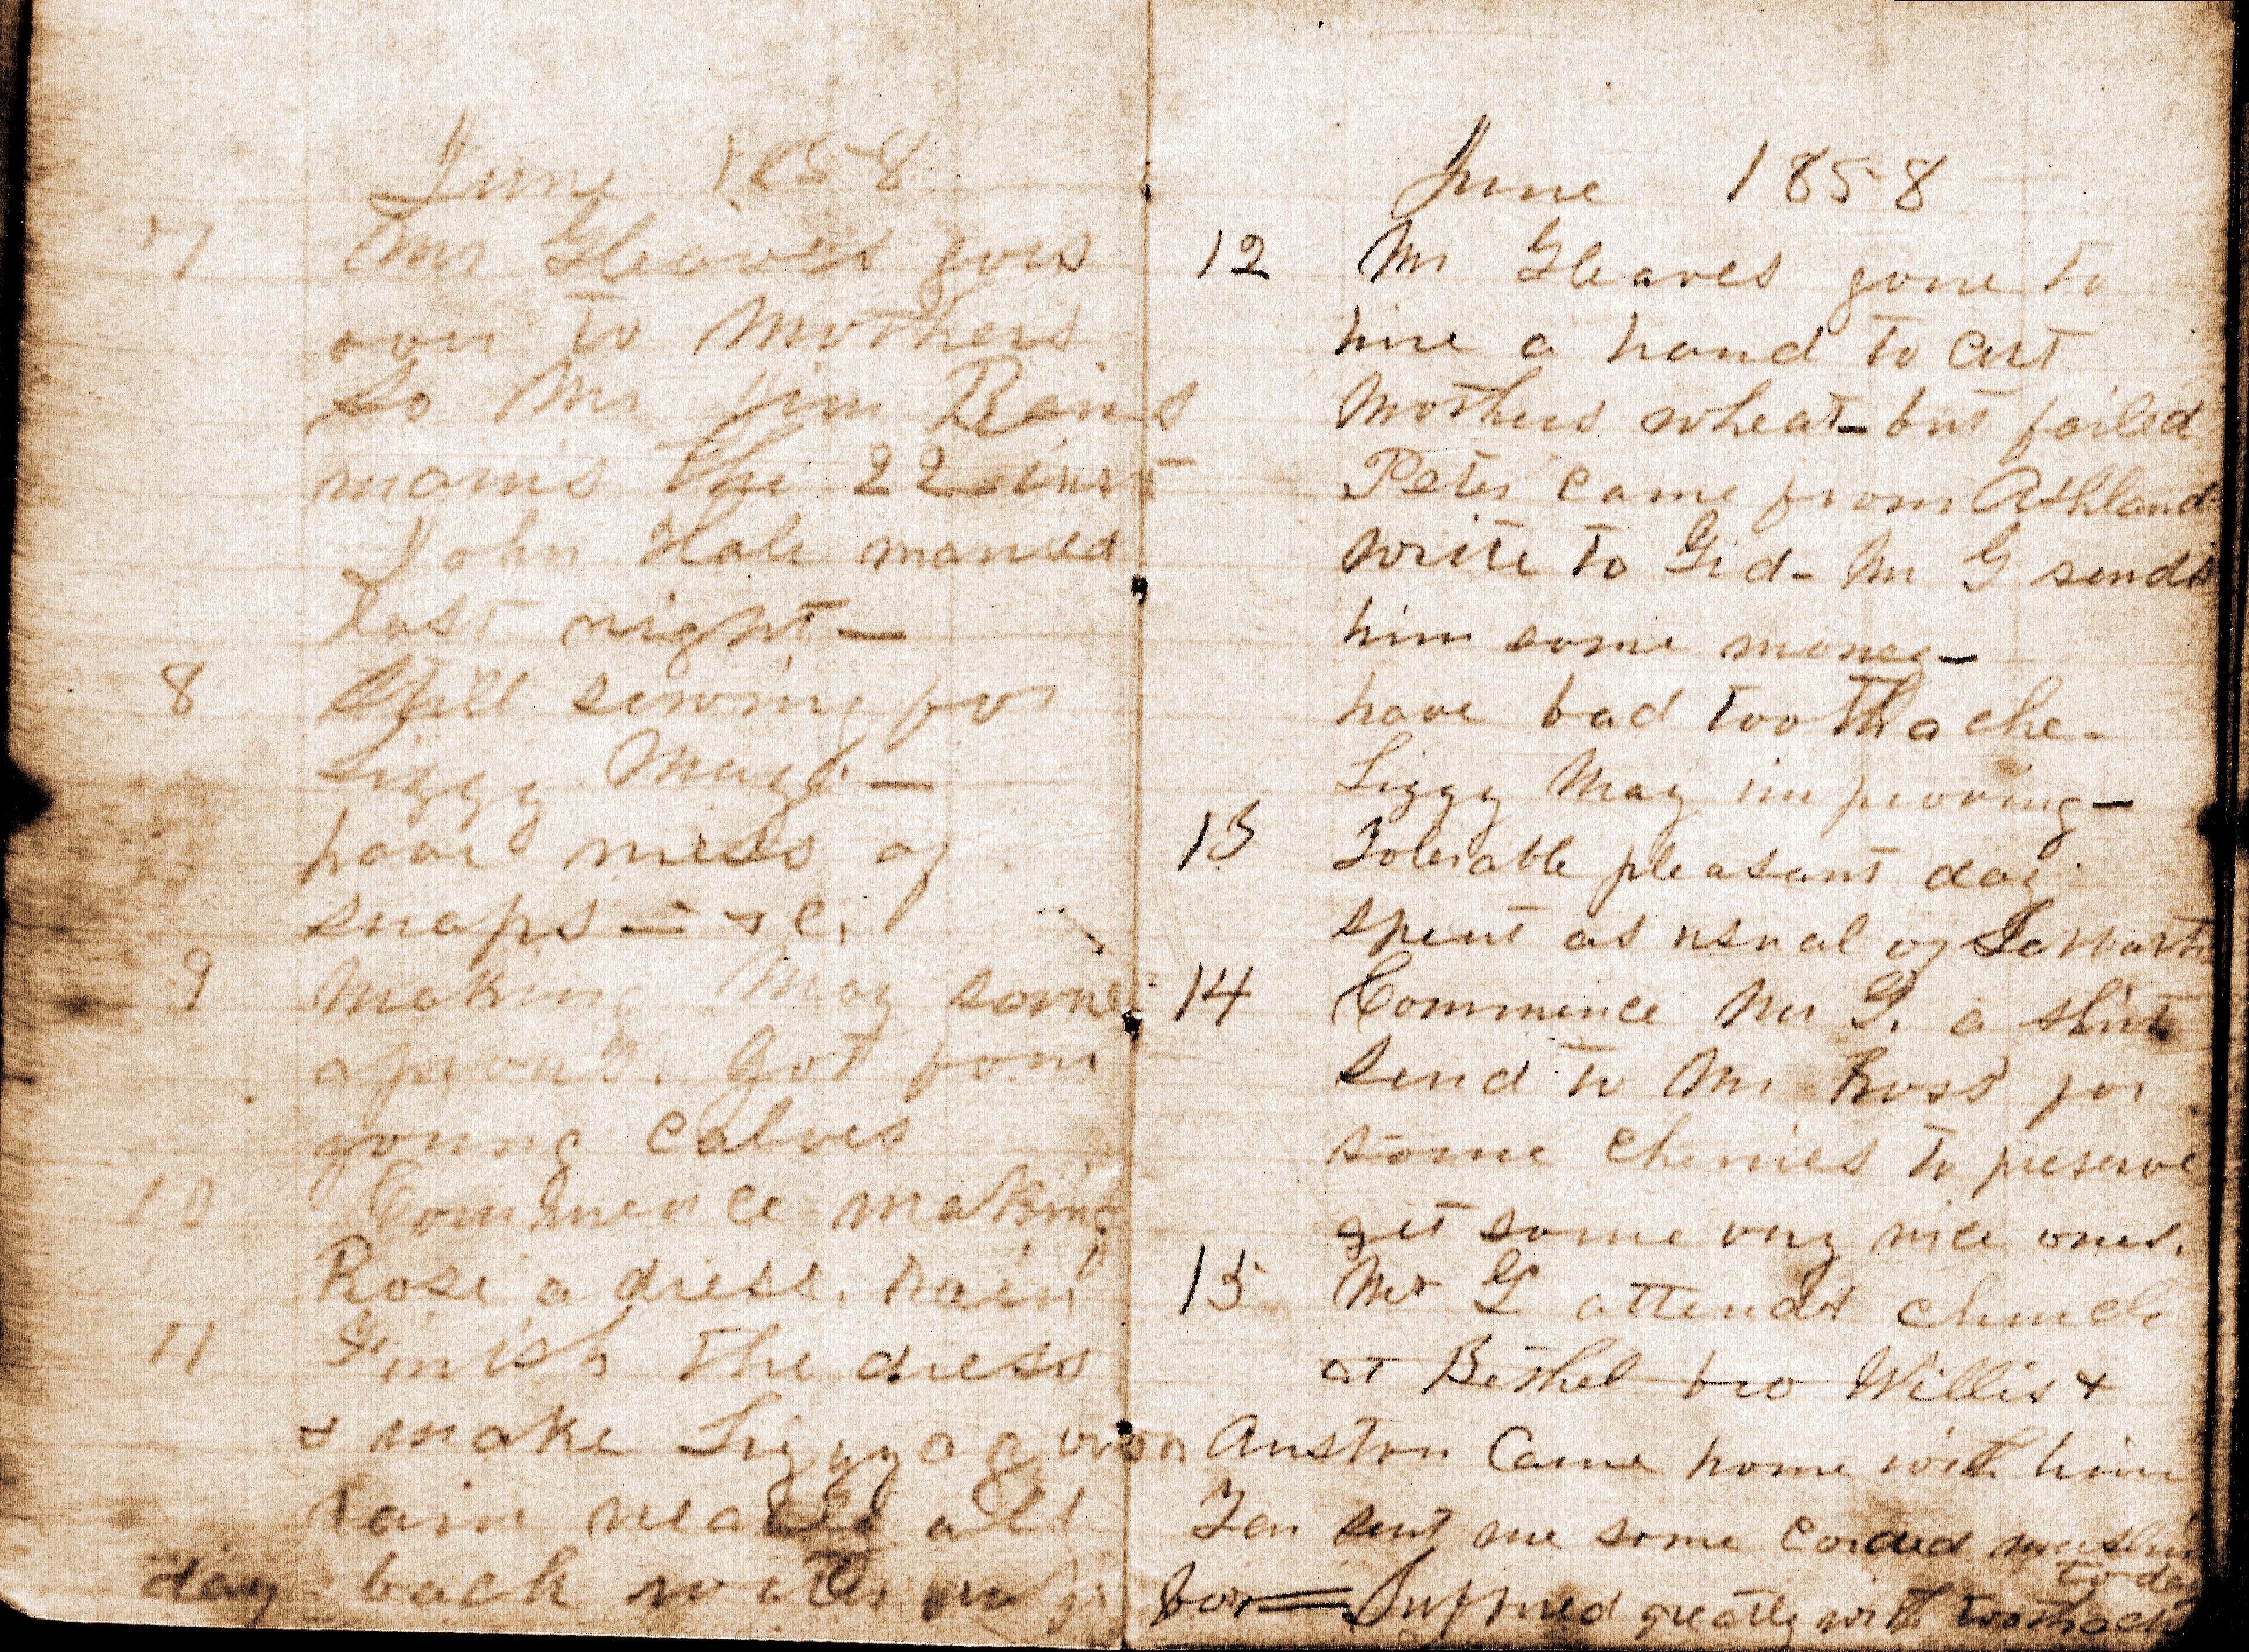 June 1858
7 Mr Gleaves goes
over to Mothers
So Mr Jim Rains
marries the 22 inst
John Hale married
last night —
8 Still sewing for
Lizzy May —
have mess of
snaps = &c.
9 Making May some
aprons. Got four
young calves
10 Commence making
Rose a dress. rain
11 Finish the dress
& make Lizzy a apron
rain nearly all
day = back water
June 1858
12 Mr Gleaves gone to
hire a hand to cut
Mothers wheat — but failed
Peter came from Ashland
write to Gid — Mr G sends
him some money —
have bad toothache —
Lizzy May improving —
13 Tolerable pleasant day
spent as usual of
14 Commence Mr G. a shirt
Send to Mr Ross for
some cherries to preserve
get some very nice ones.
15 Mr G attends church
at Bethel bro Willis &
Auston Came home with him
Ten sent me some corded muslin
to day
for = Suffered greatly with toothach